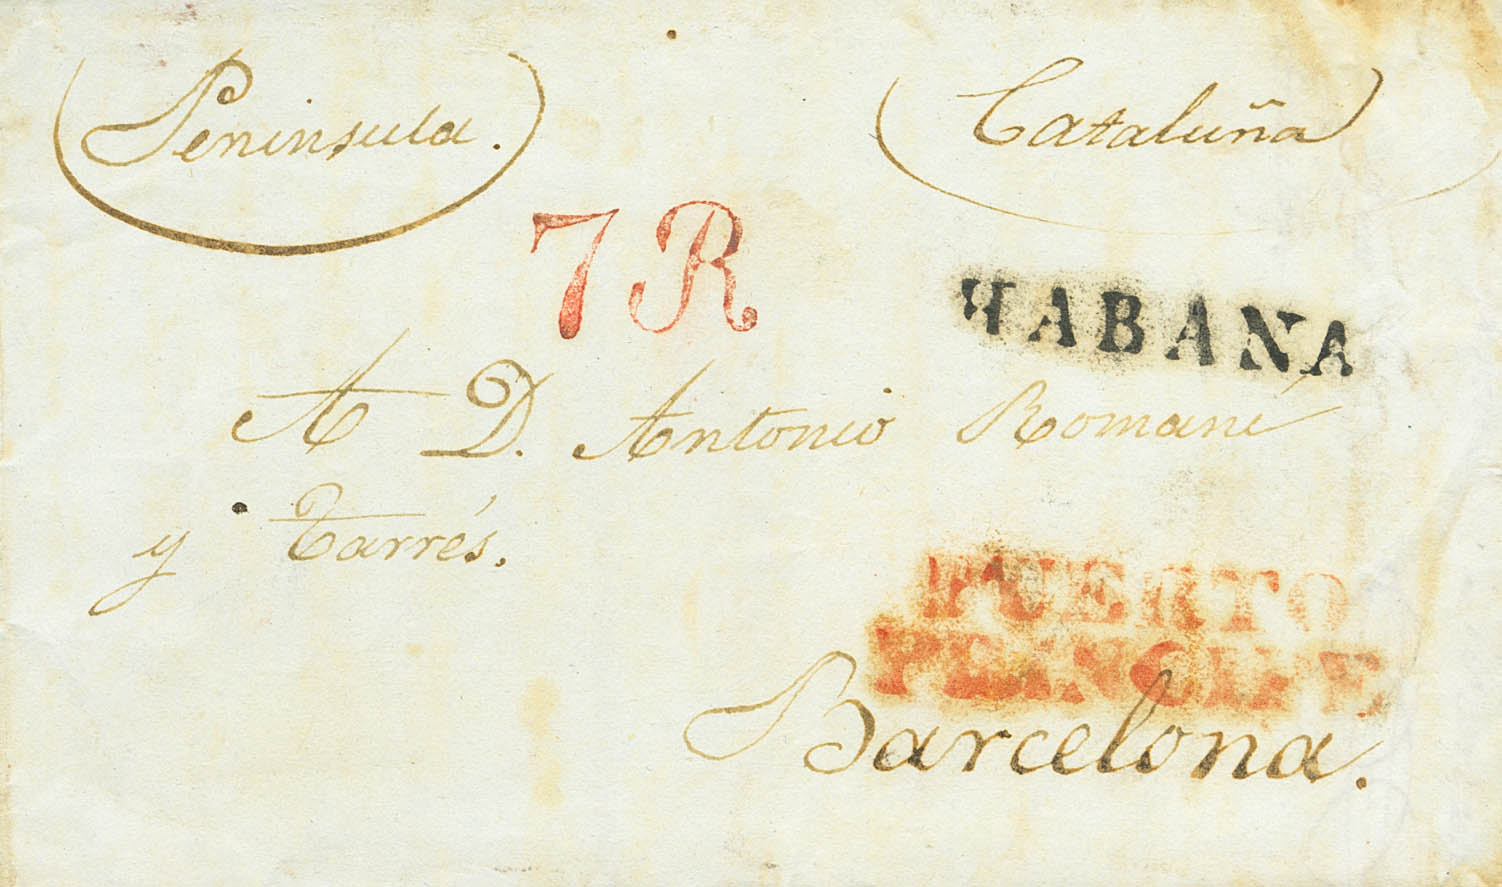 Peninsula.
Cataluña
7R
HABANA
A D. Antonio Romaní
y Tarrés.
PUERTO
PRINCIPE
Barcelona.